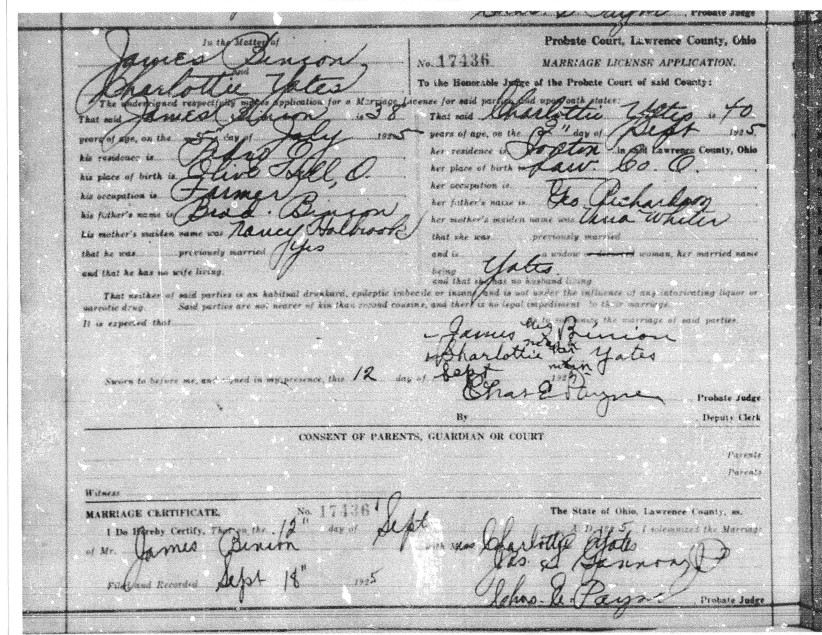 Probate Judge
In the Matter of
James Binion
and
Charlottie Yates
Probate Court, Lawrence County, Ohio
No. 17436 MARRIAGE LICENSE APPLICATION.
To the Honorable Judge of the Probate Court of said County:
The undersigned respectfully makes application for a Marriage License for said parties and upon oath states:
That said James Binion is 58
years of age, on the 5" day of July 1925
his residence is
his place of birth is Olive Hill, O.
his occupation is Farmer
his father's name is Brad. Binion
his mother's maiden name was Nancy Holbrook
that he was previously married yes
and that he has no wife living.
That said Charlottie Yates is 40
years of age, on the day of Sept 1925
her residence is in said Lawrence County, Ohio
her place of birth is Law. Co. O.
her occupation is
her father's name is Geo. Richardson
her mother's maiden name was Anna
that she was previously married
and is a widow or divorced woman, her married name
being Yates
and that she has no husband living
That neither of said parties is an habitual drunkard, epileptic imbecile or insane, and is not under the influence of any intoxicating liquor or
narcotic drug. Said parties are not nearer of kin than second cousins, and there is no legal impediment to their marriage.
It is expected that is to solemnize the marriage of said parties.
James his Binion
mark
Charlottie her Yates
mark
Sworn to before me, and signed in my presence, this 12 day of Sept 192
Chas E Payne Probate Judge
By Deputy Clerk
CONSENT OF PARENTS, GUARDIAN OR COURT
Parents
Parents
Witness
MARRIAGE CERTIFICATE. No. 17436 The State of Ohio, Lawrence County, ss.
I Do Hereby Certify, That on the 12" day of Sept A. D. 1925, I solemnized the Marriage
of Mr. James Binion with Mrs Charlotte Yates
Jas. S. Gannon JP
Filed and Recorded Sept 18" 1925
Chas. E. Payne Probate Judge